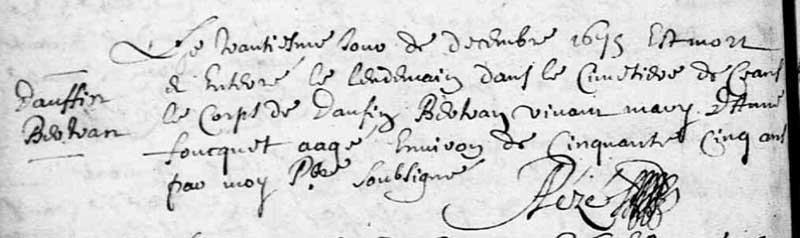 Le vantiesme Jour de decembre 1675 Est mort
Dauffin
Bertran
& Enterré le lendemain dans le Cimetiere de Ceans
le Corps de Daufin Bertran vivant mary d'Anne
foucquet aagé Environ de Cinquante Cinq ans
par moy Pbre soubsigné